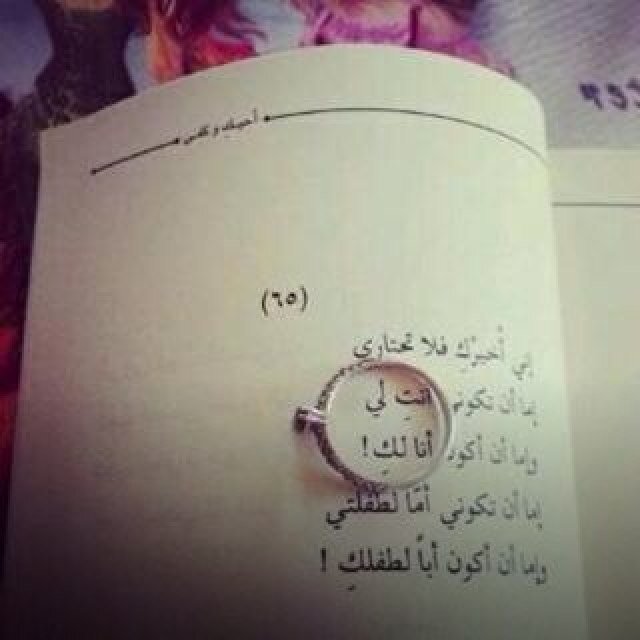 أحبك وكفى
(٦٥)
إني أُخيرُكِ فلا تحتاري
إما أن تكوني أنتِ لي
وإما أن أكون أنا لكِ !
إما أن تكوني أمًا لطفلتي
وإما أن أكون أباً لطفلكِ !